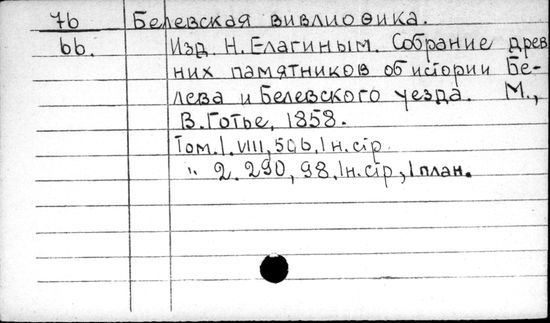 7b Белевская вивлиоѳика.
bb. Изд. Н. Елагиным. Собрание древ
них памятников об истории Бе-
лева и Белевского уезда. М.,
В. Готье, 1858.
Том. I. VIII, 506, I н. стр.
" 2. 290, 98. I н. стр, I план.